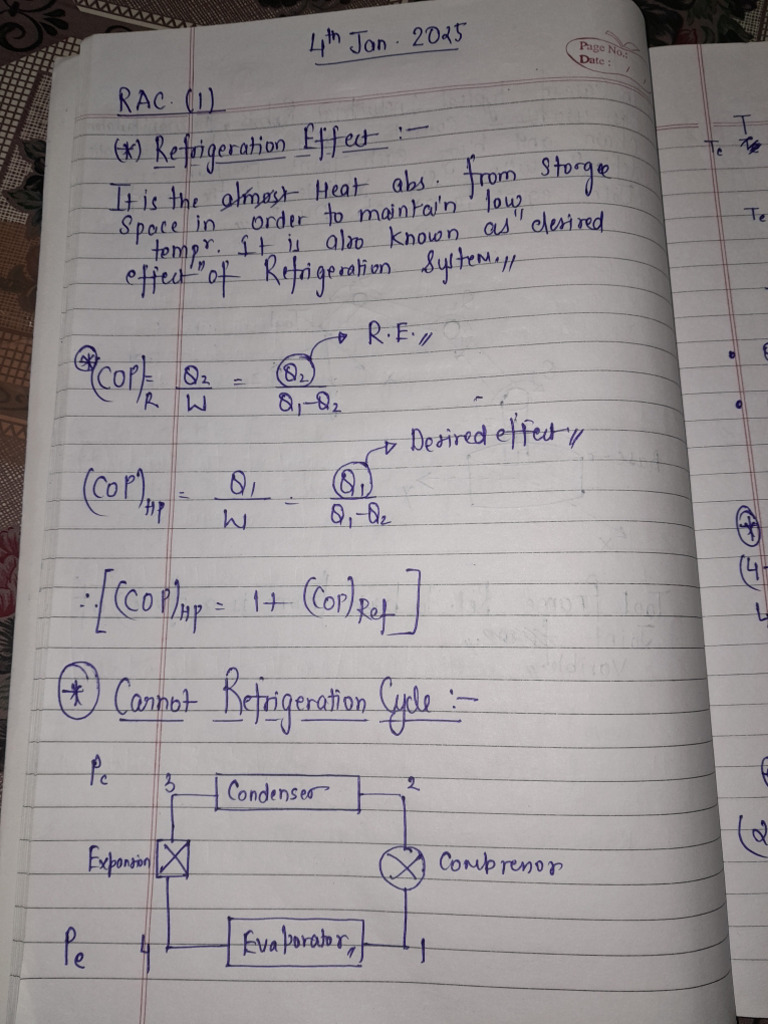 4th Jan. 2025
Page No.:
Date :
RAC. (1)
(*) Refrigeration Effect :-
It is the Heat abs. from Storge
Space in order to maintain low
tempr. It is also known as "desired
effect" of Refrigeration System.,,
R.E.,,
* (COP)R = Q2/W = Q2/Q1-Q2
Desired effect,,
(COP)HP = Q1/W = Q1/Q1-Q2
∴ [(COP)HP = 1+ (COP)Ref]
* Cannot Refrigeration Cycle :-
Pc 3 Condenser 2
Expansion Compressor
Pe 4 Evaporator,, 1
T
Tc
Te
*
(4
4
(2